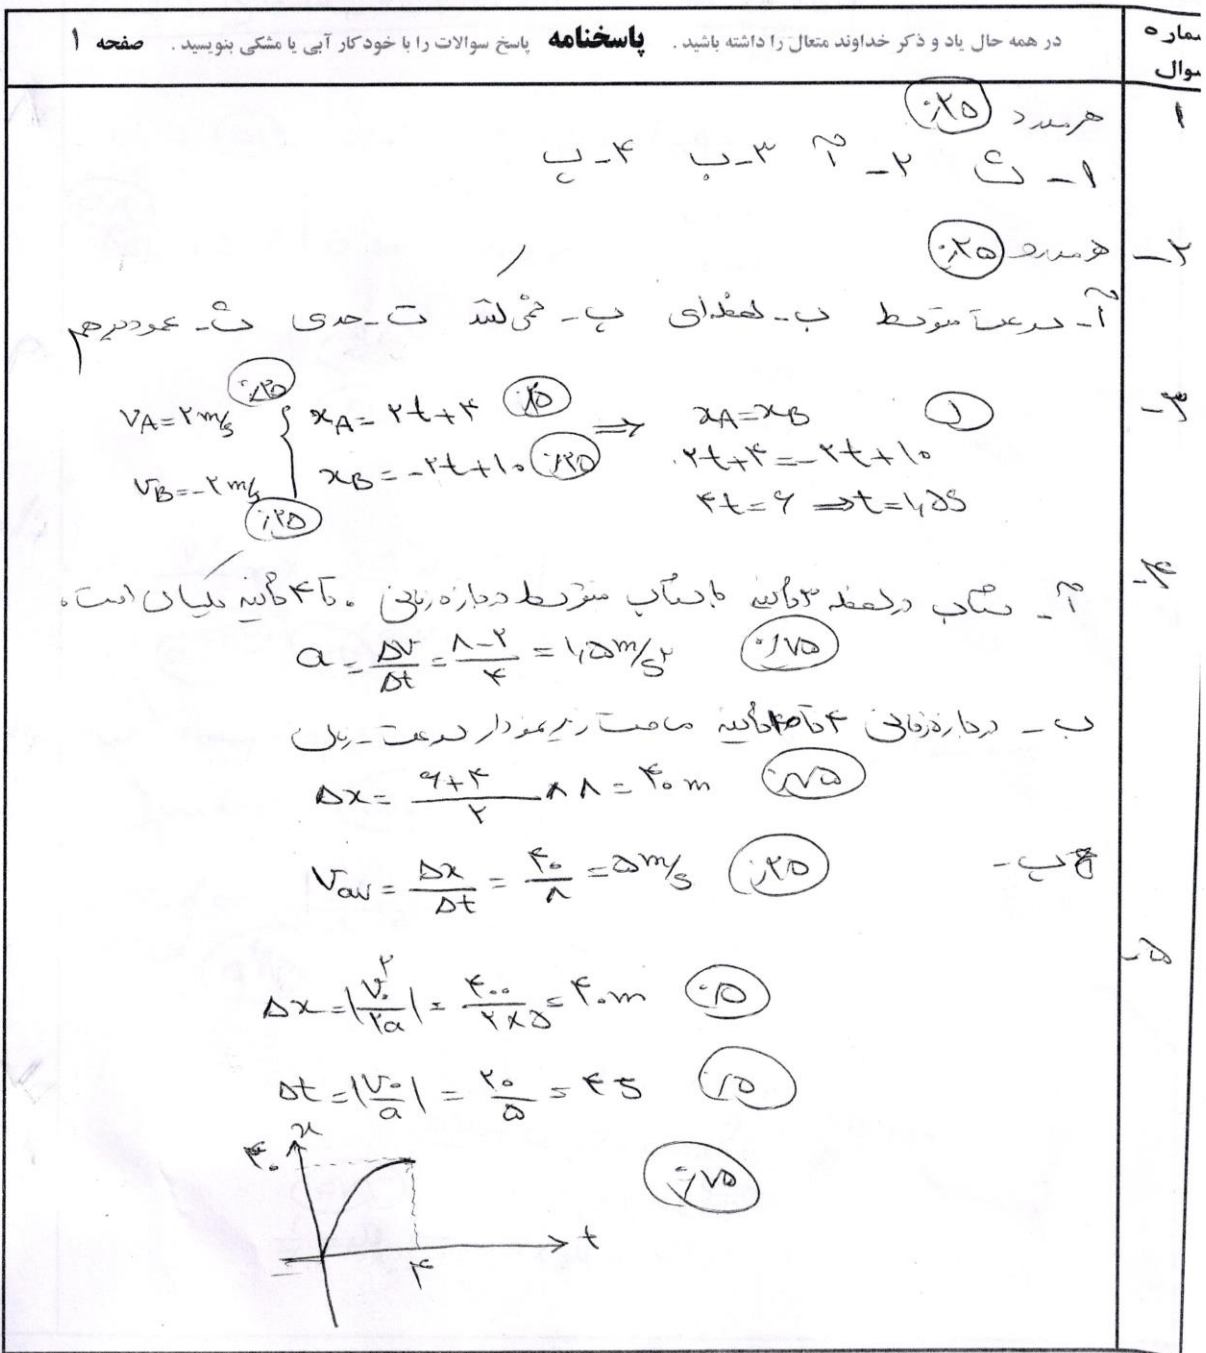 در همه حال یاد و ذکر خداوند متعال را داشته باشید . پاسخنامه پاسخ سوالات را با خودکار آبی یا مشکی بنویسید . صفحه ۱
سوال
۱ هرمورد ۰/۲۵
۱- ث ۲- آ ۳- ب ۴- پ
۲- هرمورد ۰/۲۵
آ- سرعت متوسط ب- لحظه‌ای پ- نمی‌کند ت- ث- عمود برهم
۳- ۱
v_A=۲ m/s ۰/۲۵ x_A=۲t+۴ ۰/۲۵ ⇒ x_A=x_B
v_B=-۲ m/s ۰/۲۵ x_B=-۲t+۱۰ ۰/۲۵ ۲t+۴=-۲t+۱۰
۴t=۶ ⇒ t=۱,۵s
۴-
آ- شتاب درلحظه ۳ثانیه باشتاب متوسط دربازه‌زمانی ۰ تا ۴ ثانیه یکسان است.
a=Δv/Δt=(۸-۲)/۴=۱,۵ m/s² ۰/۷۵
ب- دربازه‌زمانی ۴تا ثانیه مساحت زیرنمودار سرعت-زمان
Δx=(۶+۴)/۲ × ۸=۴۰m ۰/۷۵
پ-
V_av=Δx/Δt=۴۰/۸=۵ m/s ۰/۲۵
۵-
Δx=|v₀²/۲a|=۴۰۰/(۲×۵)=۴۰m ۰/۵
Δt=|v₀/a|=۲۰/۵=۴s ۰/۵
x
۴۰ ۰/۷۵
t
۴